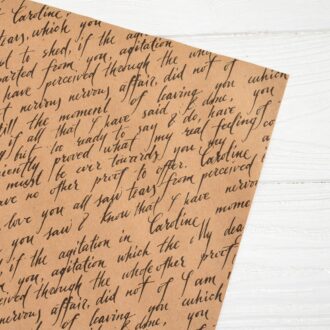 Caroline
tears, which you
not to shed, if the agitation
parted from you, agitation
have perceived through the which
nervous affair, did not of
till the moment of leaving you which
if all that I have said to done, you
but be ready to say & do, have of
ciently proved what my real feeling
must be ever towards you, my
have no other proof to offer. Caroline
love you all saw tears from perceived
you saw I know that I have nervous
if the agitation in Caroline moment
you, agitation which the My dea
ceived through the whole other proof
nervous affair, did not of I am
moment of leaving you
that I have said